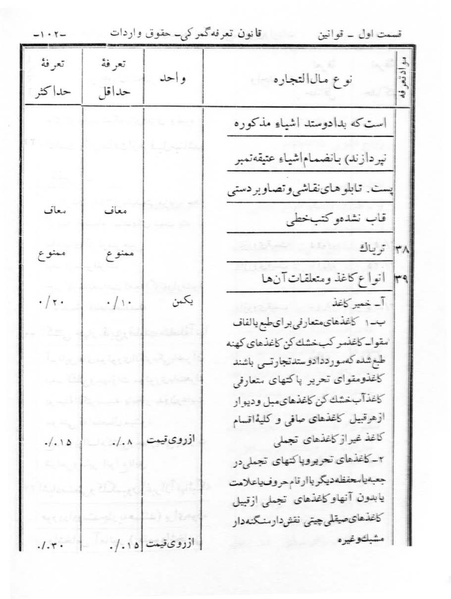 قسمت اول ـ قوانین    قانون تعرفه گمرکی ـ حقوق واردات    -۱۰۲-
مواد تعرفه    نوع مال‌التجاره    واحد    تعرفهٔ حداقل    تعرفهٔ حداکثر
است که بدادوستد اشیاء مذکوره
نپردازند) بانضمام اشیاء عتیقه نمبر
پست. تابلوهای نقاشی و تصاویر دستی
قاب نشده و کتب خطی    معاف    معاف
۳۸    تریاك    ممنوع    ممنوع
۳۹    انواع کاغذ و متعلقات آن‌ها
آـ خمیر کاغذ    یکمن    ۰/۱۰    ۰/۲۰
ب‌ـ ۱ کاغذهای متعارفی برای طبع یا لفاف
مقواـ کاغذ مرکب خشک کن کاغذهای کهنه
طبع شده که مورد دادوستد تجارتی باشند
کاغذ و مقوای تحریر پاکتهای متعارفی
کاغذ آب خشک کن کاغذهای مبل و دیوار
از هر قبیل کاغذهای صافی و کلیهٔ اقسام
کاغذ غیر از کاغذهای تجملی    از روی قیمت    ۰/۰۸    ۰/۰۱۵
۲ـ کاغذهای تحریر و پاکتهای تجملی در
جعبه یا محفظه دیگر با ارقام حروف یا علامت
یا بدون آنها و کاغذهای تجملی از قبیل
کاغذهای صیقلی چینی نقش دار منگنه دار
مشبك وغیره    از روی قیمت    ۰/۰۱۵    ۰/۰۳۰